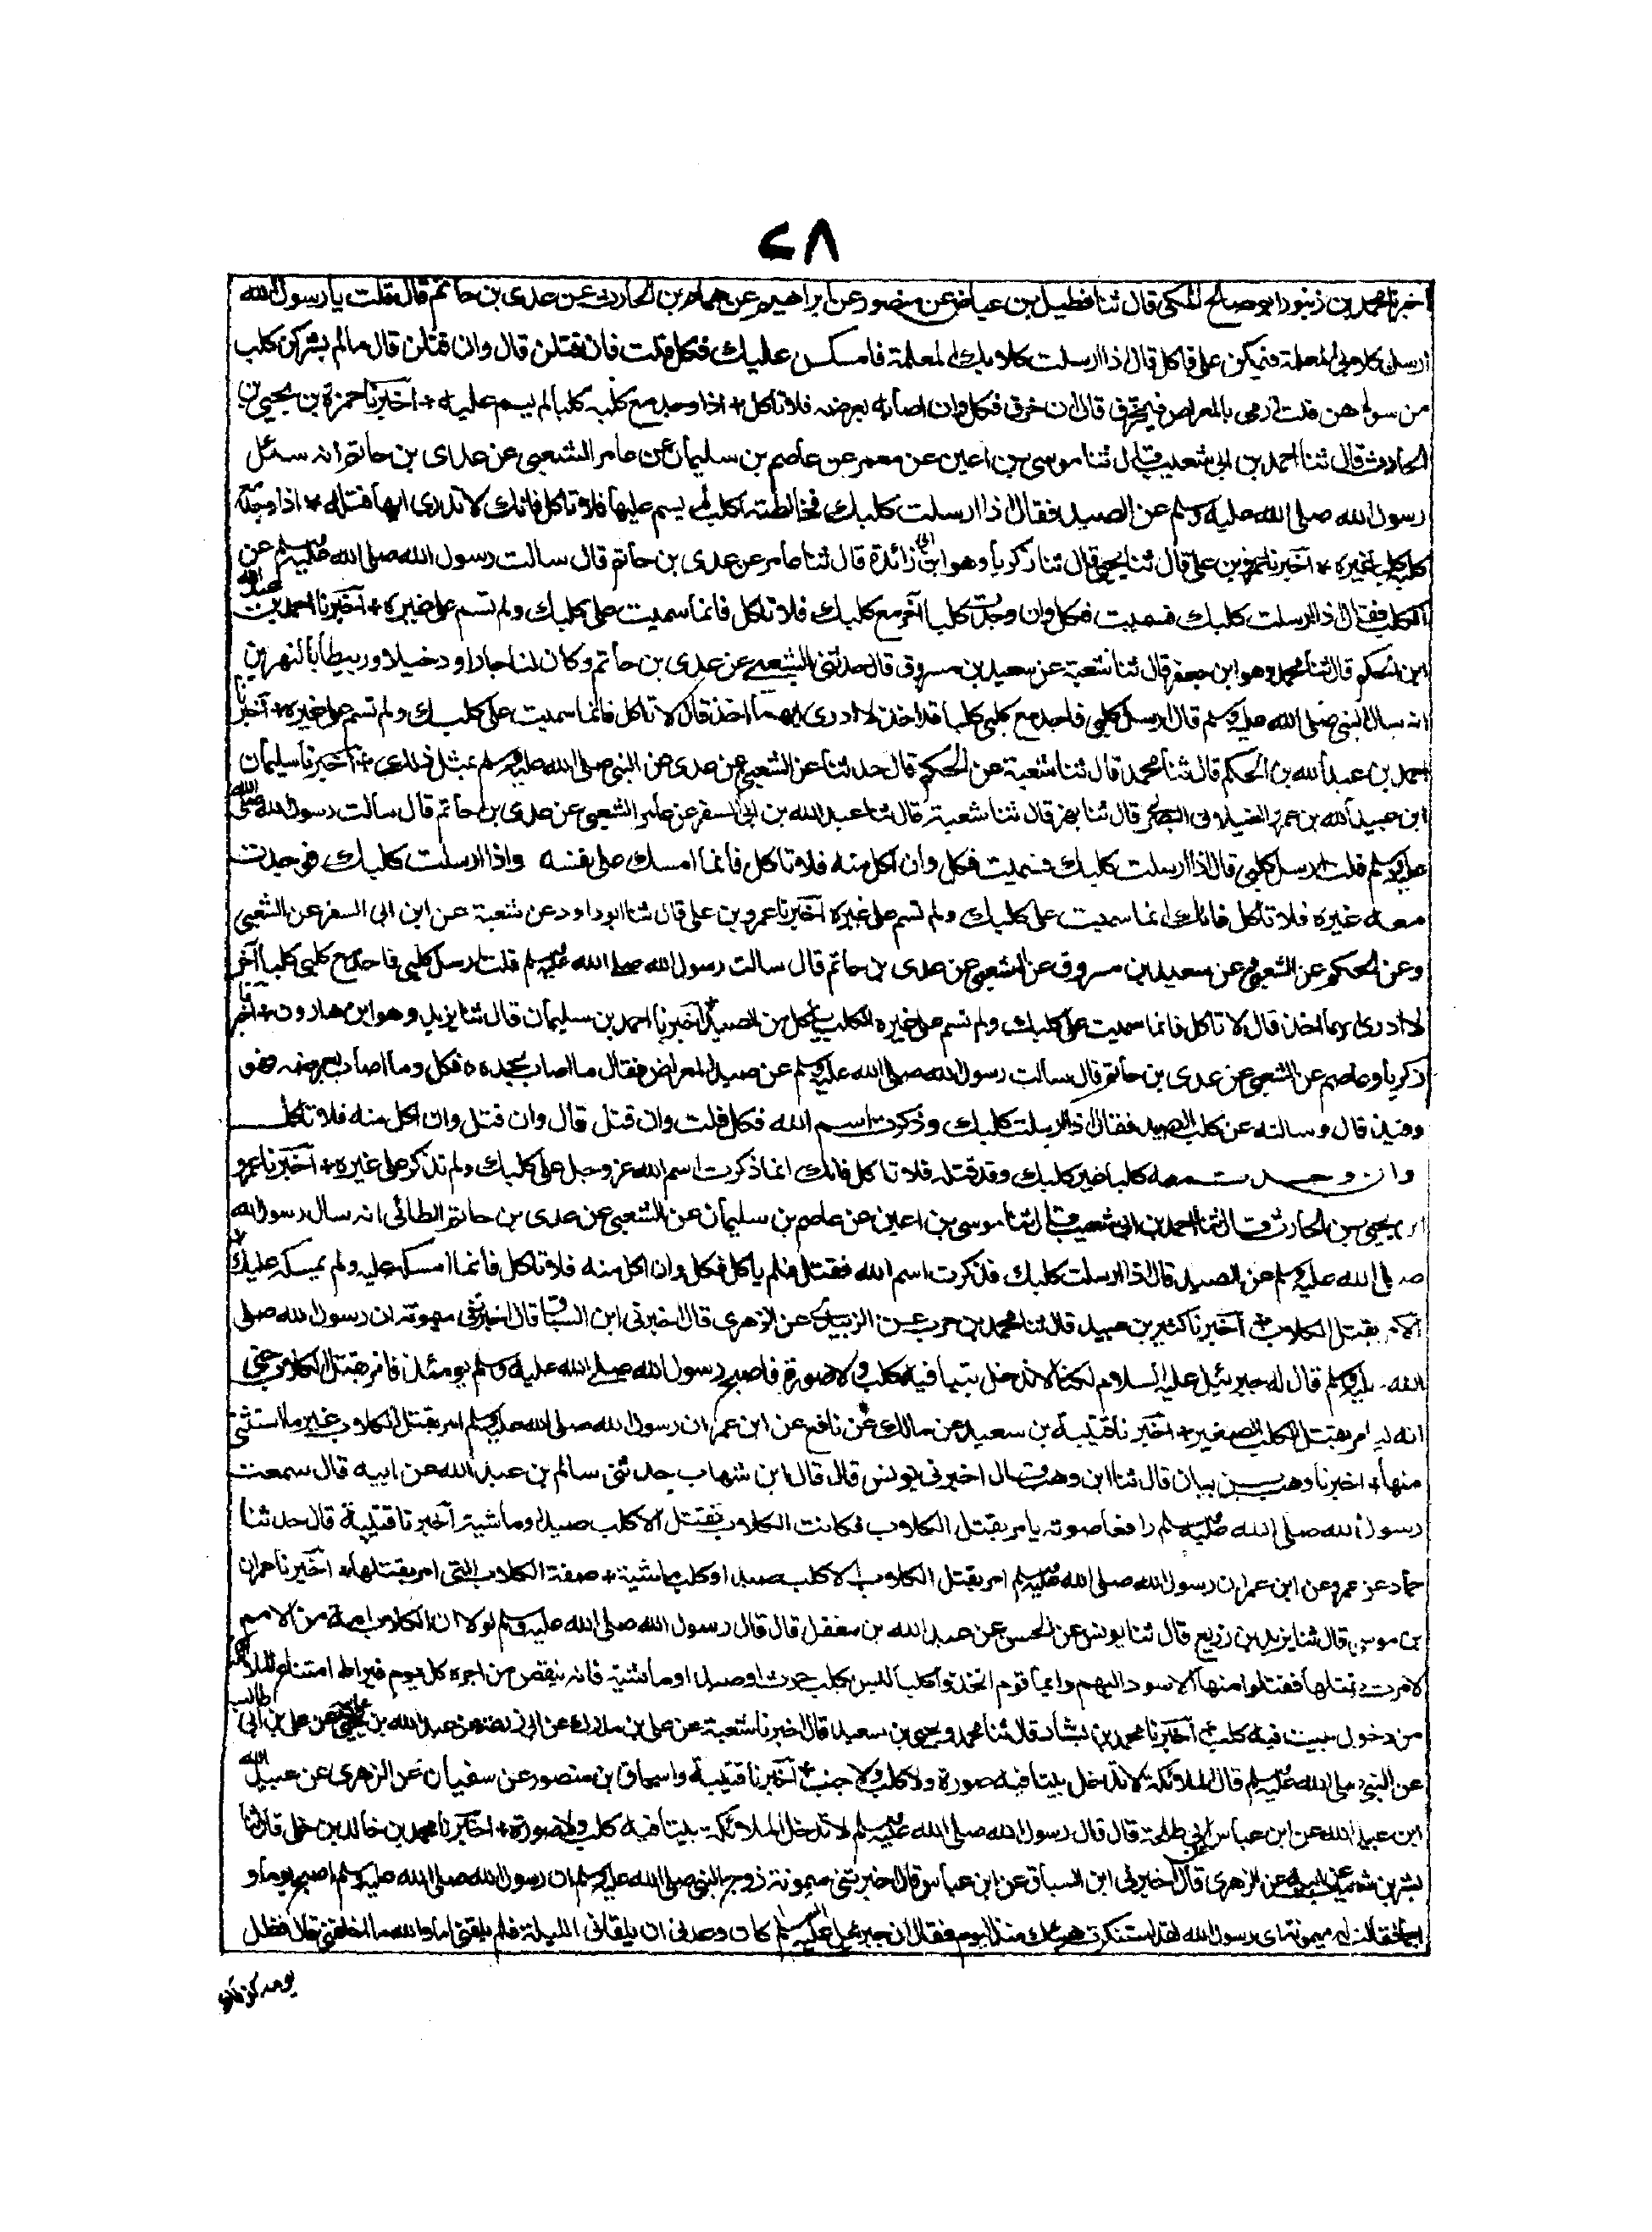 ٢٨
اخبرنا محمد بن زنبور ابو صالح المكى قال ثنا فضيل بن عياض عن منصور عن ابراهيم عن همام بن الحارث عن عدى بن حاتم قال قلت يا رسول الله
ارسل كلابى المعلمة فيمسكن على فاكل قال اذا ارسلت كلابك المعلمة فامسكن عليك فكل قلت فان قتلن قال وان قتلن قال مالم يشركهن كلب
من سواهن قلت ارمى بالمعراض فيخرق قال ان خرق فكل وان اصابه بعرضه فلا تاكل + اذا وجد مع كلبه كلبا لم يسم عليه + اخبرنا عمرو بن يحيى بن
الحارث قال ثنا احمد بن ابى شعيب قال ثنا موسى بن اعين عن معمر عن عاصم بن سليمان عن عامر الشعبى عن عدى بن حاتم انه سئل
رسول الله صلى الله عليه وسلم عن الصيد فقال اذا ارسلت كلبك فخالطته اكلب لم يسم عليها فلا تاكل فانك لا تدرى ايها قتله + اذا وجد مع
كلبه كلب غيره + اخبرنا عمرو بن على قال ثنا يحيى قال ثنا زكريا وهو ابن ابى زائدة قال ثنا عامر عن عدى بن حاتم قال سالت رسول الله صلى الله عليه وسلم عن
الكلب فقال اذا ارسلت كلبك فسميت فكل وان وجدت كلبا اخر مع كلبك فلا تاكل فانما سميت على كلبك ولم تسم على غيره + اخبرنا احمد بن عبد الله
ابن الحكم قال ثنا محمد وهو ابن جعفر قال ثنا شعبة عن سعيد بن مسروق قال حدثنى الشعبى عن عدى بن حاتم وكان لنا جارا ودخيلا وربيطا بالنهرين
انه سال النبى صلى الله عليه وسلم قال ارسل كلبى فاجد مع كلبى كلبا قد اخذ لا ادرى ايهما اخذ قال لا تاكل فانما سميت على كلبك ولم تسم على غيره + اخبرنا
احمد بن عبد الله بن الحكم قال ثنا محمد قال ثنا شعبة عن الحكم قال حدثنا عن الشعبى عن عدى عن النبى صلى الله عليه وسلم بمثل ذلك + اخبرنا سليمان
ابن عبيد الله بن عمرو الغيلانى البصرى قال ثنا بهز قال ثنا شعبة قال ثنا عبد الله بن ابى السفر عن عامر الشعبى عن عدى بن حاتم قال سالت رسول الله صلى الله
عليه وسلم قلت ارسل كلبى قال اذا ارسلت كلبك فسميت فكل وان اكل منه فلا تاكل فانما امسك على نفسه واذا ارسلت كلبك فوجدت
معه غيره فلا تاكل فانك انما سميت على كلبك ولم تسم على غيره اخبرنا عمرو بن على قال ثنا ابو داود عن شعبة عن ابن ابى السفر عن الشعبى
وعن الحكم عن الشعبى وعن سعيد بن مسروق عن الشعبى عن عدى بن حاتم قال سالت رسول الله صلى الله عليه وسلم قلت ارسل كلبى فاجد مع كلبى كلبا اخر
لا ادرى ايهما اخذ قال لا تاكل فانما سميت على كلبك ولم تسم على غيره الكلب ياكل من الصيد + اخبرنا احمد بن سليمان قال ثنا يزيد وهو ابن هارون + اخبرنا
زكريا وعاصم عن الشعبى عن عدى بن حاتم قال سالت رسول الله صلى الله عليه وسلم عن صيد المعراض فقال ما اصاب بحده فكل وما اصاب بعرضه فهو
وقيذ قال وسالته عن كلب الصيد فقال اذا ارسلت كلبك وذكرت اسم الله فكل قلت وان قتل قال وان قتل وان اكل منه فلا تاكل
وان وجدت معه كلبا غير كلبك وقد قتله فلا تاكل فانك انما ذكرت اسم الله عز وجل على كلبك ولم تذكر على غيره + اخبرنا عمرو
ابن يحيى بن الحارث قال ثنا احمد بن ابى شعيب قال ثنا موسى بن اعين عن عاصم بن سليمان عن الشعبى عن عدى بن حاتم الطائى انه سال رسول الله
صلى الله عليه وسلم عن الصيد قال اذا ارسلت كلبك فذكرت اسم الله فقتل فلم ياكل فكل وان اكل منه فلا تاكل فانما امسك عليه ولم يمسك عليك +
الامر بقتل الكلاب + اخبرنا كثير بن عبيد قال ثنا محمد بن حرب عن الزبيدى عن الزهرى قال اخبرنى ابن السباق قال اخبرتنى ميمونة ان رسول الله صلى
الله عليه وسلم قال له جبرئيل عليه السلام لكنا لا ندخل بيتا فيه كلب ولا صورة فاصبح رسول الله صلى الله عليه وسلم يومئذ فامر بقتل الكلاب حتى
انه ليامر بقتل الكلب الصغير + اخبرنا قتيبة بن سعيد عن مالك عن نافع عن ابن عمر ان رسول الله صلى الله عليه وسلم امر بقتل الكلاب غير ما استثنى
منها + اخبرنا وهب بن بيان قال ثنا ابن وهب قال اخبرنى يونس قال قال ابن شهاب حدثنى سالم بن عبد الله عن ابيه قال سمعت
رسول الله صلى الله عليه وسلم رافعا صوته يامر بقتل الكلاب فكانت الكلاب تقتل الا كلب صيد او ماشية اخبرنا قتيبة قال حدثنا
حماد عن عمرو عن ابن عمر ان رسول الله صلى الله عليه وسلم امر بقتل الكلاب الا كلب صيد او كلب ماشية + صفة الكلاب التى امر بقتلها + اخبرنا عمران
بن موسى قال ثنا يزيد بن زريع قال ثنا يونس عن الحسن عن عبد الله بن مغفل قال قال رسول الله صلى الله عليه وسلم لولا ان الكلاب امة من الامم
لامرت بقتلها فقتلوا منها الاسود البهيم وايما قوم اتخذوا كلبا ليس بكلب حرث او صيد او ماشية فانه ينقص من اجره كل يوم قيراط امتناع الملائكة
من دخول بيت فيه كلب + اخبرنا محمد بن بشار قال ثنا محمد ويحيى بن سعيد قال اخبرنا شعبة عن على بن مدرك عن ابى زرعة عن عبد الله بن نجى عن ابيه عن على بن ابى طالب
عن النبى صلى الله عليه وسلم قال الملائكة لا تدخل بيتا فيه صورة ولا كلب ولا جنب + اخبرنا قتيبة واسحاق بن منصور عن سفيان عن الزهرى عن عبيد الله
ابن عبد الله عن ابن عباس عن ابى طلحة قال قال رسول الله صلى الله عليه وسلم لا تدخل الملائكة بيتا فيه كلب ولا صورة + اخبرنا محمد بن خالد بن خلى قال ثنا
بشر بن شعيب عن ابيه عن الزهرى قال اخبرنى ابن السباق عن ابن عباس قال اخبرتنى ميمونة زوج النبى صلى الله عليه وسلم ان رسول الله صلى الله عليه وسلم اصبح يوما و
اجما فقالت له ميمونة اى رسول الله لقد استنكرت هيئتك منذ اليوم فقال ان جبرئيل عليه السلام كان وعدنى ان يلقانى الليلة فلم يلقنى اما والله ما اخلفنى قال فظل
يومه كذلك